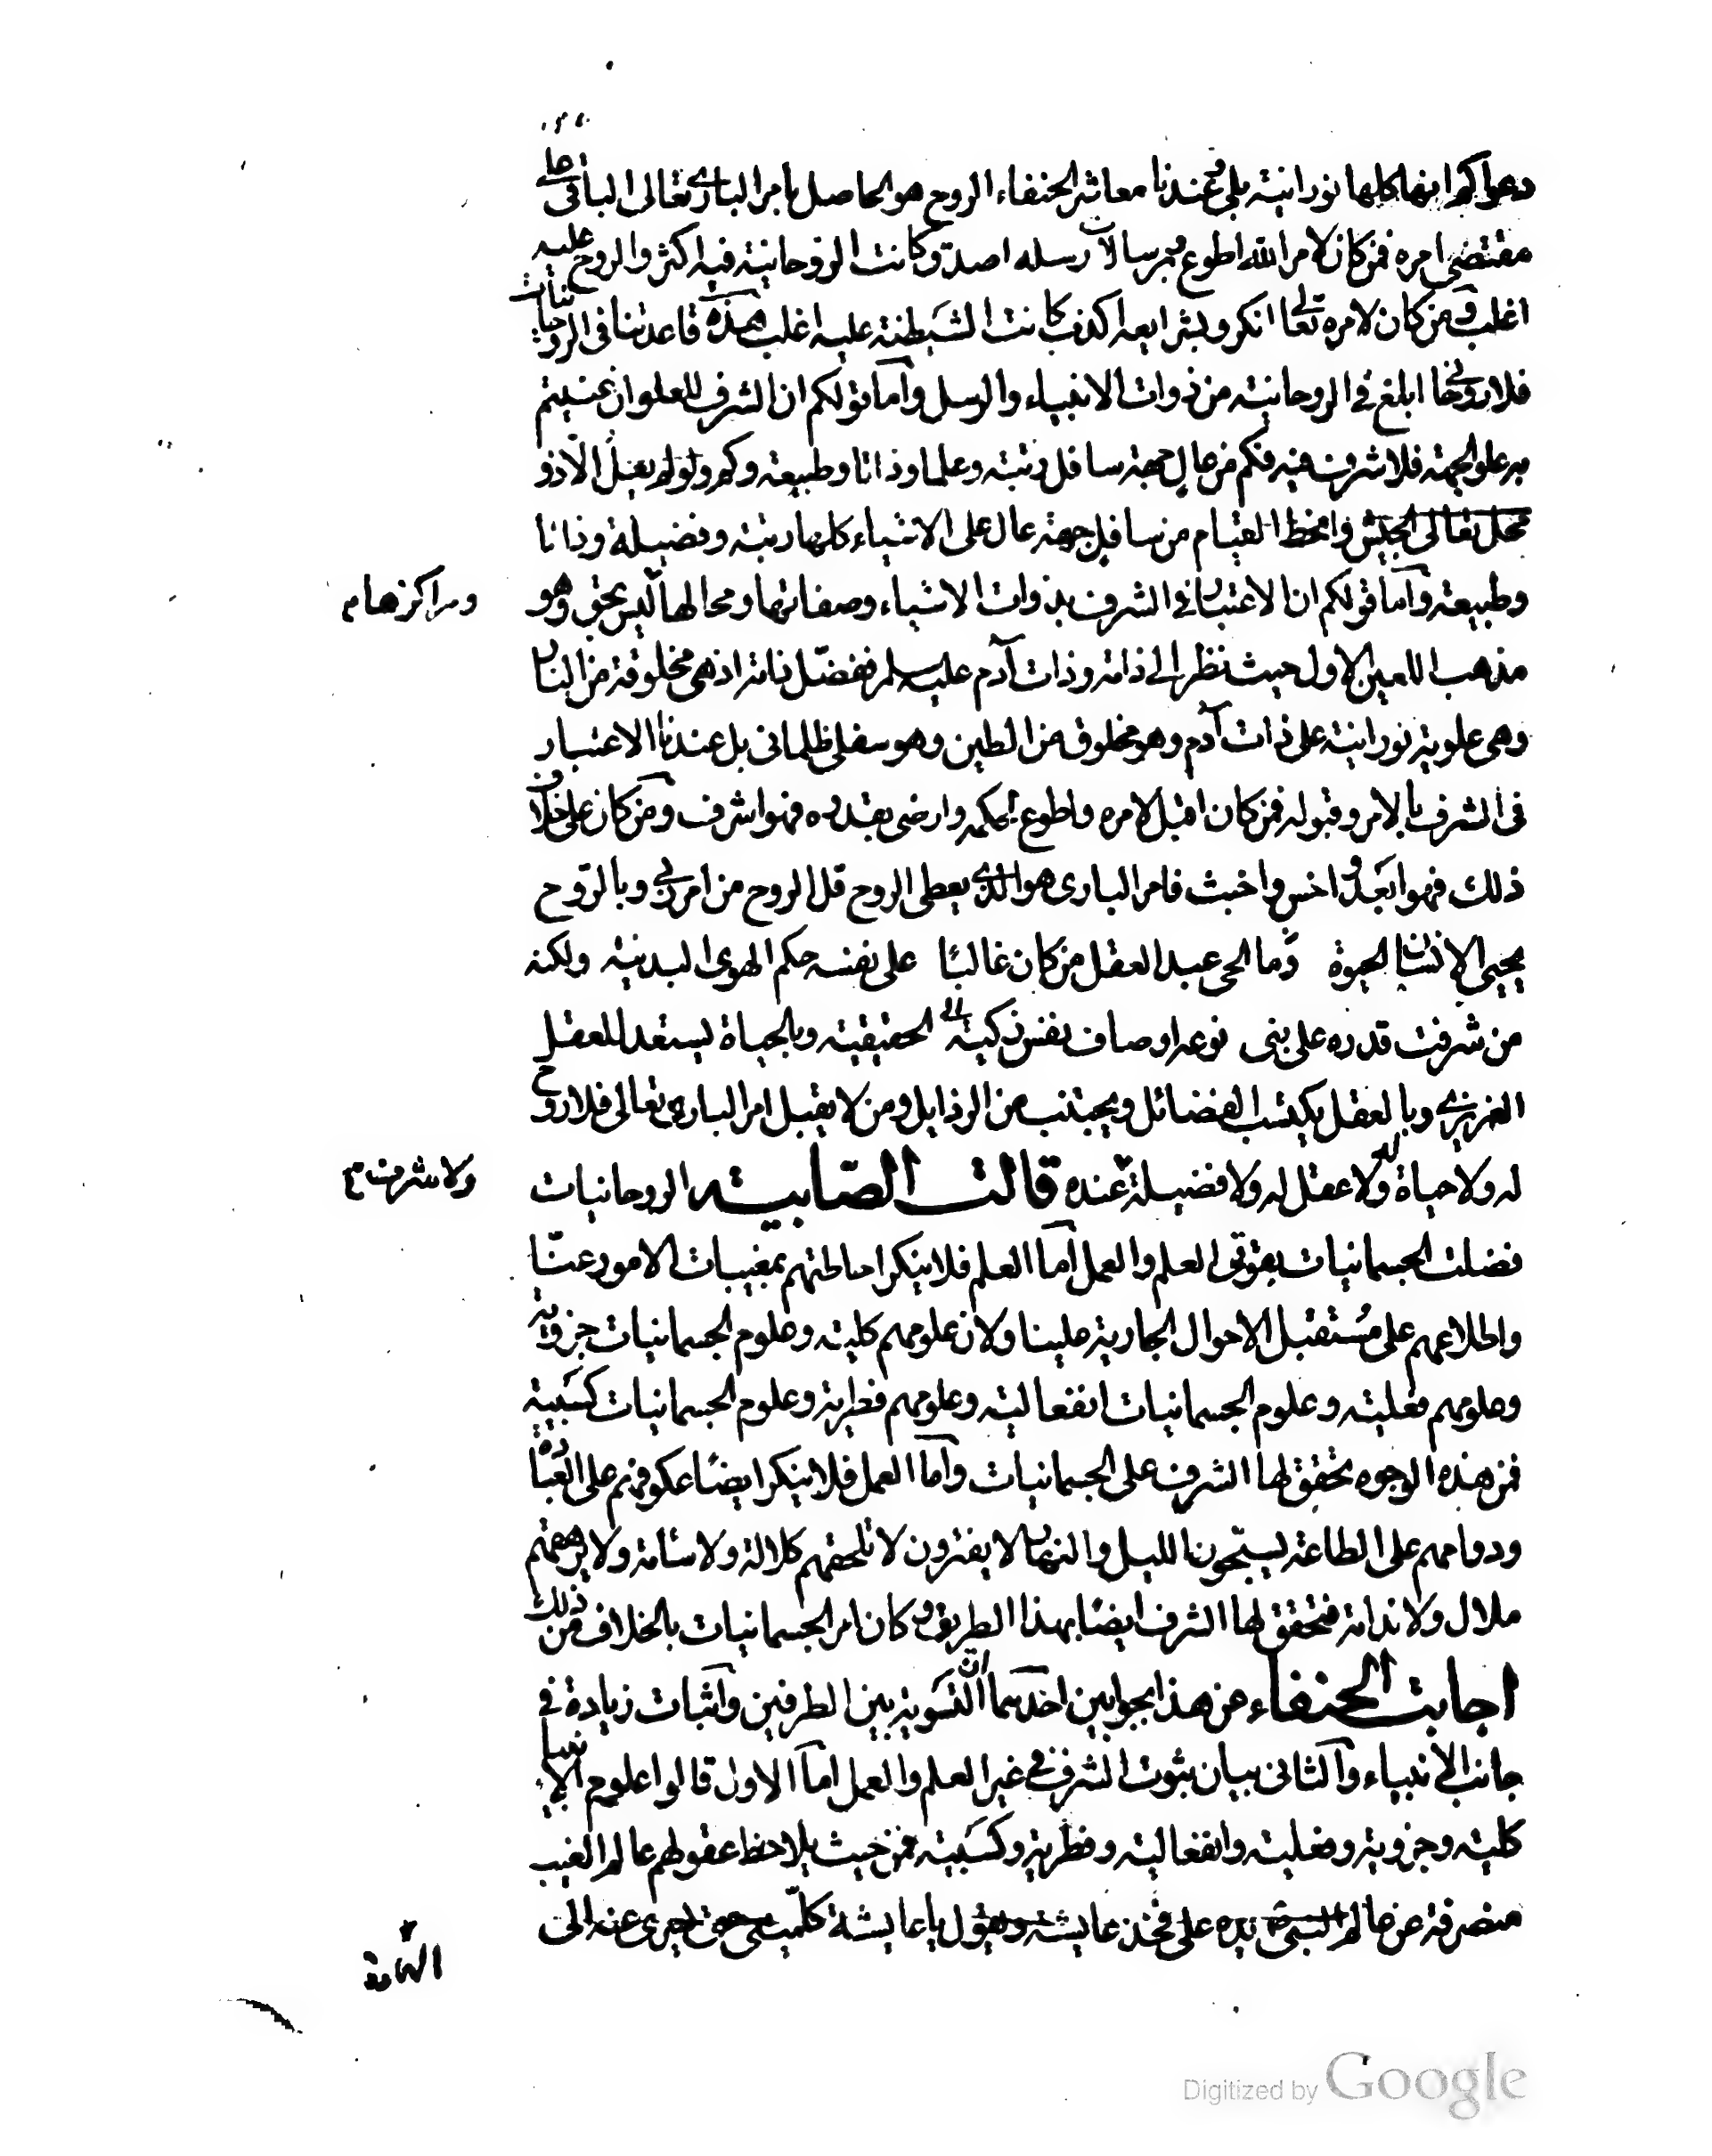 دعواكم انها كلها نورانية بلى وعندنا معاشر الحنفاء الروح هو الحاصل بامر الباري تعالى الباقى على
مقتضى امره فمن كان لامر الله اطوع وبرسالات رسله اصدق وكانت الروحانية فيه اكثر والروح عليه
اغلب ومن كان لامره تعالى انكر وبشرايعه اكذب كانت الشيطنة عليه اغلب هذه قاعدتنا فى الروحانيات
فلا روحانى ابلغ في الروحانية من ذوات الانبياء والرسل وأما قولكم ان الشرف للعلو ان عنيتم
به علو الجهة فلا شرف فيه فكم من عالٍ جهة سافل رتبة وعلما وذاتا وطبيعة وكم
وطبيعة وأما قولكم ان الاعتبار في الشرف بذوات الاشياء وصفاتها ومحالها ليس بحق وهو
ومراكزها م
مذهب اللعين الاول حيث نظر الى ذاته وذات آدم عليه السلم ففضّل ذاته اذ هى مخلوقة من النار
وهى علوية نورانية على ذات آدم وهو مخلوق من الطين وهو سفلى ظلمانى بل عندنا الاعتبار
فى الشرف بالامر وقبوله فمن كان اقبل لامره واطوع لحكمه وارضى بقدره فهو اشرف ومن كان على خلاف
ذلك فهو ابعد واخس واخبث فامر البارى هو الذي يعطى الروح قل الروح من امر ربي وبالروح
يحيى الانسان الحيوة وما الحى عبد العقل من كان غالبًا على نفسه حكم الهوى البدنية ولكنه
من شرفت قدره على بنى نوعه اوصاف نفس زكية الحقيقية وبالحياة يستعد للعقل
الغريزي وبالعقل يكتسب الفضائل ويجتنب عن الرذايل ومن لا يقبل امر البارى تعالى فلا روح
له ولا حياة له ولا عقل له ولا فضيلة عنده قالت الصّابيــة الروحانيات
ولا شرف م
فضلت الجسمانيات بقوتى العلم والعمل أما العلم فلا ينكر احاطتهم بمغيبات الامور عنّا
واطلاعهم على مُستقبل الاحوال الجارية علينا ولان علومهم كلية وعلوم الجسمانيات جزوية
وعلومهم فعلية وعلوم الجسمانيات انفعالية وعلومهم فطرية وعلوم الجسمانيات كسبية
فمن هذه الوجوه تحقق لها الشرف على الجسمانيات وأما العمل فلا ينكر ايضًا عكوفهم على العبادة
ودوامهم على الطاعة يسبّحون الليل والنهار لا يفترون لا تلحقهم كلالة ولا سئامة ولا يرهقهم
ملال ولا ندامة فتحقق لها الشرف ايضًا بهذا الطريق وكان امر الجسمانيات بالخلاف من ذلك
اجابت الحنفاء عن هذا بجوابين احدهما ان التسوية بين الطرفين واثبات زيادة في
جانب الانبياء والثانى بيان ثبوت الشرف في غير العلم والعمل أما الاول قالوا علوم الانبياء
كلية وجزوية وفعلية وانفعالية وفطرية وكسبية فمن حيث يلاحظ عقولهم عالم الغيب
منصرفة عن عالم يده على فخذ عايشة ويقول يا عايشة
Digitized by Google